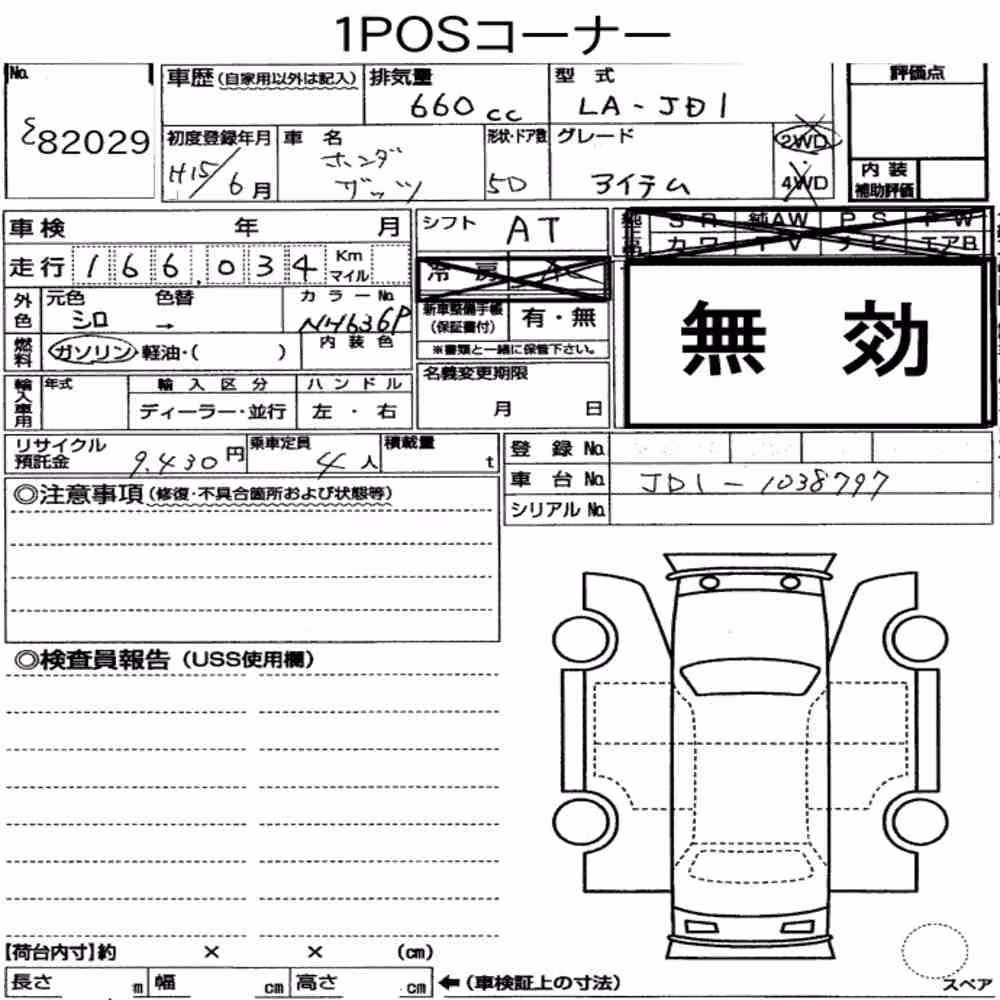 1POSコーナー
No. 82029
車歴 (自家用以外は記入)
排気量 660 cc
型式 LA-JD1
評価点
初度登録年月 H15/6月
車名 ホンダ ザッツ
形状・ドア数 5D
グレード アイテム
2WD
4WD
内装補助評価
車検 年 月
シフト AT
純 SR 純AW PS PW
革 カワ TV ナビ エアB
走行 166,034 Km マイル
冷房
外色 元色 シロ 色替 →
カラーNo. NH636P
新車整備手帳 (保証書付) 有・無
無効
燃料 ガソリン・軽油・( )
内装色
※書類と一緒に保管下さい。
輸入車用 年式 輸入区分 ディーラー・並行
ハンドル 左・右
名義変更期限 月 日
リサイクル預託金 9,430円
乗車定員 4人
積載量 t
登録No.
車台No. JD1-1038797
シリアルNo.
◎注意事項 (修復・不具合箇所および状態等)
◎検査員報告 (USS使用欄)
【荷台内寸】約 × × (cm)
長さ m 幅 cm 高さ cm ←(車検証上の寸法)
スペア